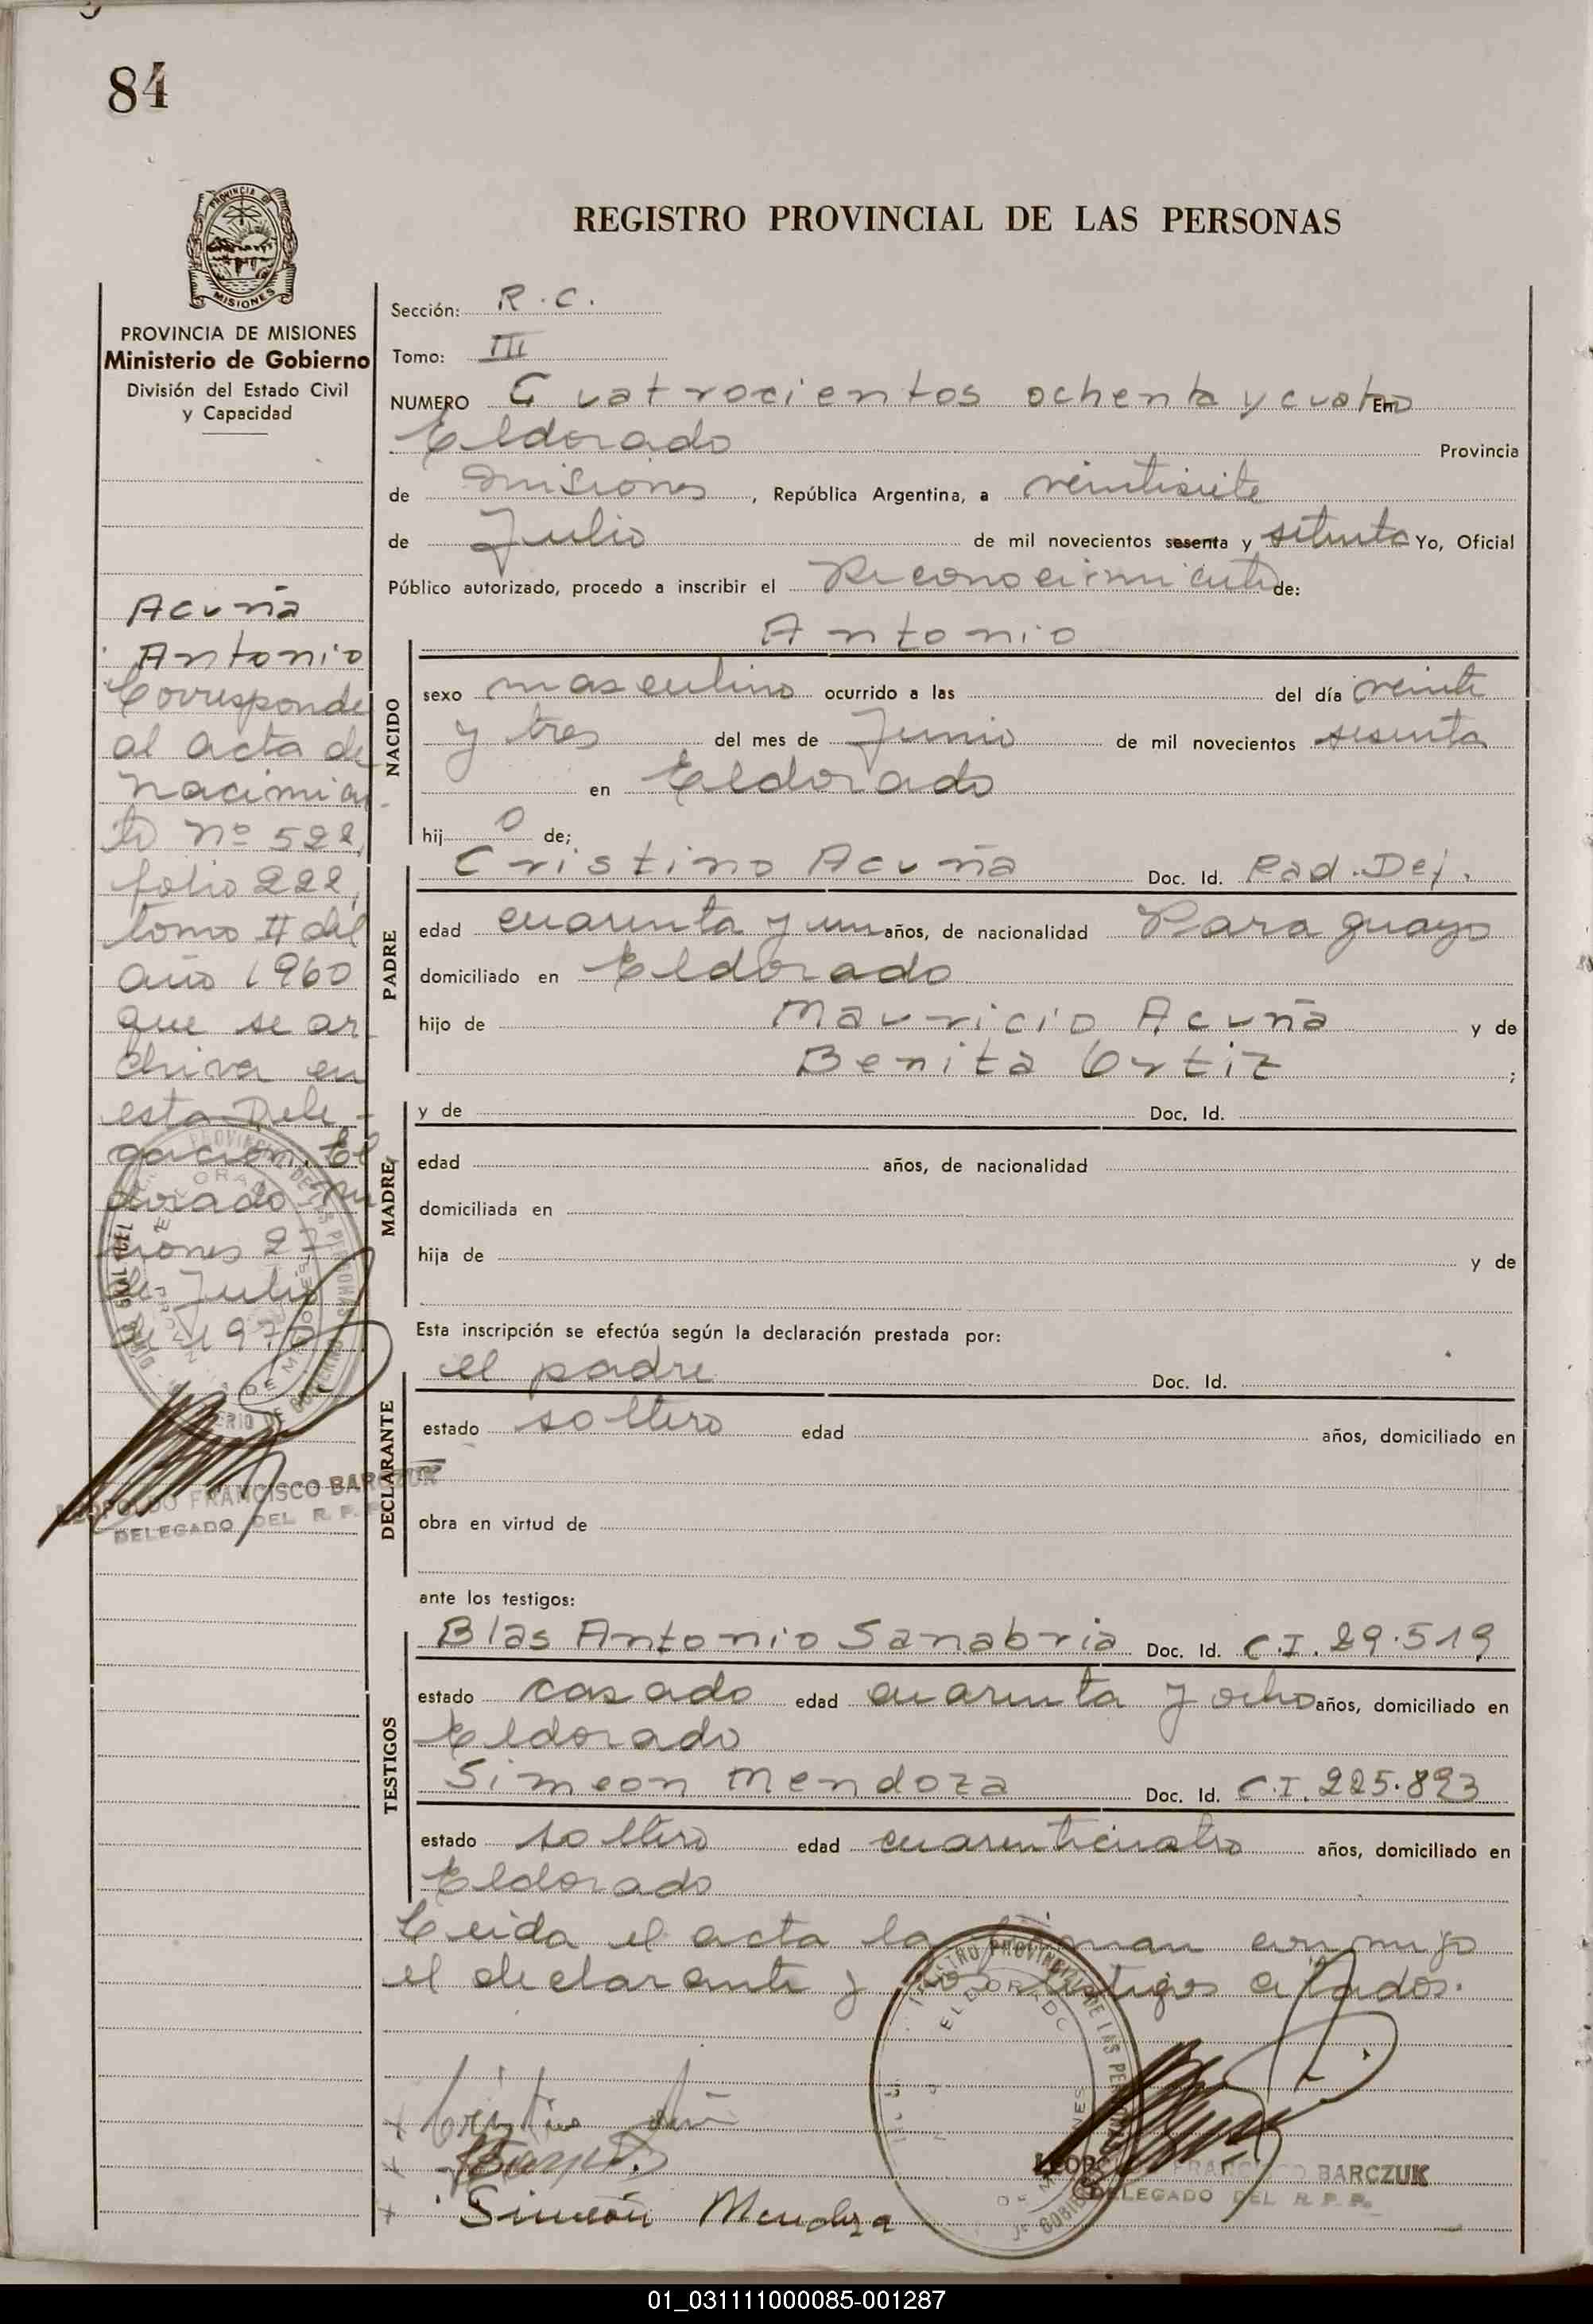 84
PROVINCIA DE
MISIONES
PROVINCIA DE MISIONES
Ministerio de Gobierno
División del Estado Civil
y Capacidad
REGISTRO PROVINCIAL DE LAS PERSONAS
Sección: R.C.
Tomo: III
NUMERO Cuatrocientos ochenta y cuatro En
Eldorado Provincia
de Misiones, República Argentina, a veintisiete
de Julio de mil novecientos sesenta y setenta Yo, Oficial
Público autorizado, procedo a inscribir el Reconocimiento de:
Antonio
NACIDO
sexo masculino ocurrido a las del día veinte
y tres del mes de Junio de mil novecientos sesenta
en Eldorado
hij o de;
Cristino Acuña Doc. Id. Rad. Def.
PADRE
edad cuarenta y un años, de nacionalidad Paraguayo
domiciliado en Eldorado
hijo de Mauricio Acuña y de
Benita Ortiz ;
MADRE
y de Doc. Id.
edad años, de nacionalidad
domiciliada en
hija de y de
Esta inscripción se efectúa según la declaración prestada por:
el padre Doc. Id.
DECLARANTE
estado soltero edad años, domiciliado en
obra en virtud de
ante los testigos:
TESTIGOS
Blas Antonio Sanabria Doc. Id. C.I. 29.519
estado casado edad cuarenta y ocho años, domiciliado en
Eldorado
Simeon Mendoza Doc. Id. C.I. 225.893
estado soltero edad cuarenticuatro años, domiciliado en
Eldorado
Leida el acta la firman conmigo
el declarante y los testigos citados.
Acuña
Antonio
Corresponde
al acta de
nacimien-
to Nº 522,
folio 222,
tomo II del
año 1960
que se ar-
chiva en
esta Dele-
gación. El
dorado Mi
siones 27
de Julio
de 1970
LEOPOLDO FRANCISCO BARCZUK
DELEGADO DEL R. P. P.
Simeón Mendoza
LEOPOLDO FRANCISCO BARCZUK
DELEGADO DEL R. P. P.
01_031111000085-001287